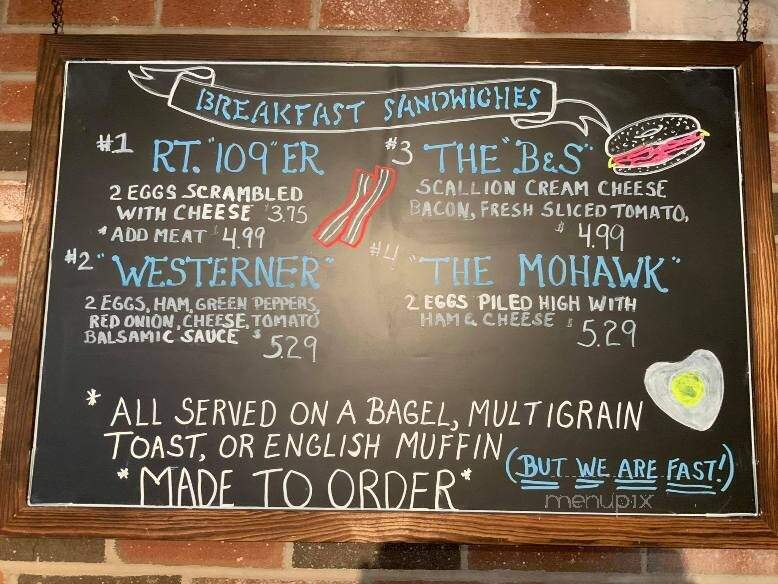 BREAKFAST SANDWICHES
#1 RT. "109" ER
2 EGGS SCRAMBLED
WITH CHEESE 3.75
* ADD MEAT 4.99
#2 "WESTERNER"
2 EGGS, HAM, GREEN PEPPERS,
RED ONION, CHEESE, TOMATO
BALSAMIC SAUCE $5.29
#3 THE "B&S"
SCALLION CREAM CHEESE
BACON, FRESH SLICED TOMATO,
$4.99
#4 "THE MOHAWK"
2 EGGS PILED HIGH WITH
HAM & CHEESE $5.29
* ALL SERVED ON A BAGEL, MULTIGRAIN
TOAST, OR ENGLISH MUFFIN
*MADE TO ORDER*
(BUT WE ARE FAST!)
menupix